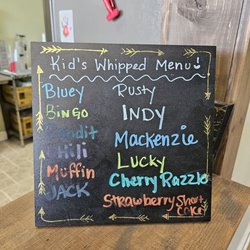 Kid's Whipped Menu!
Bluey
Bingo
Bandit
Chili
Muffin
JACK
Rusty
INDY
Mackenzie
Lucky
Cherry Razzle
Strawberry Short
Cake